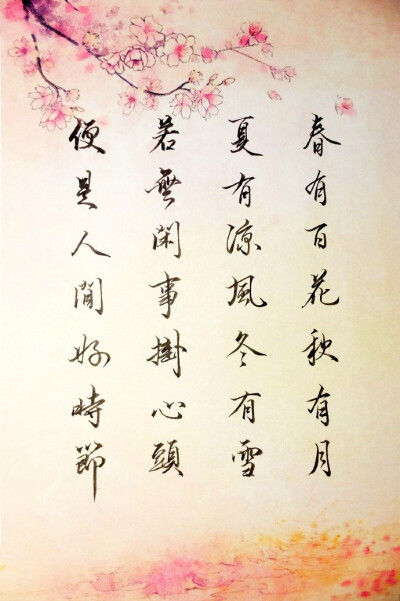 春有百花秋有月
夏有凉風冬有雪
若無閑事掛心頭
便是人間好時節